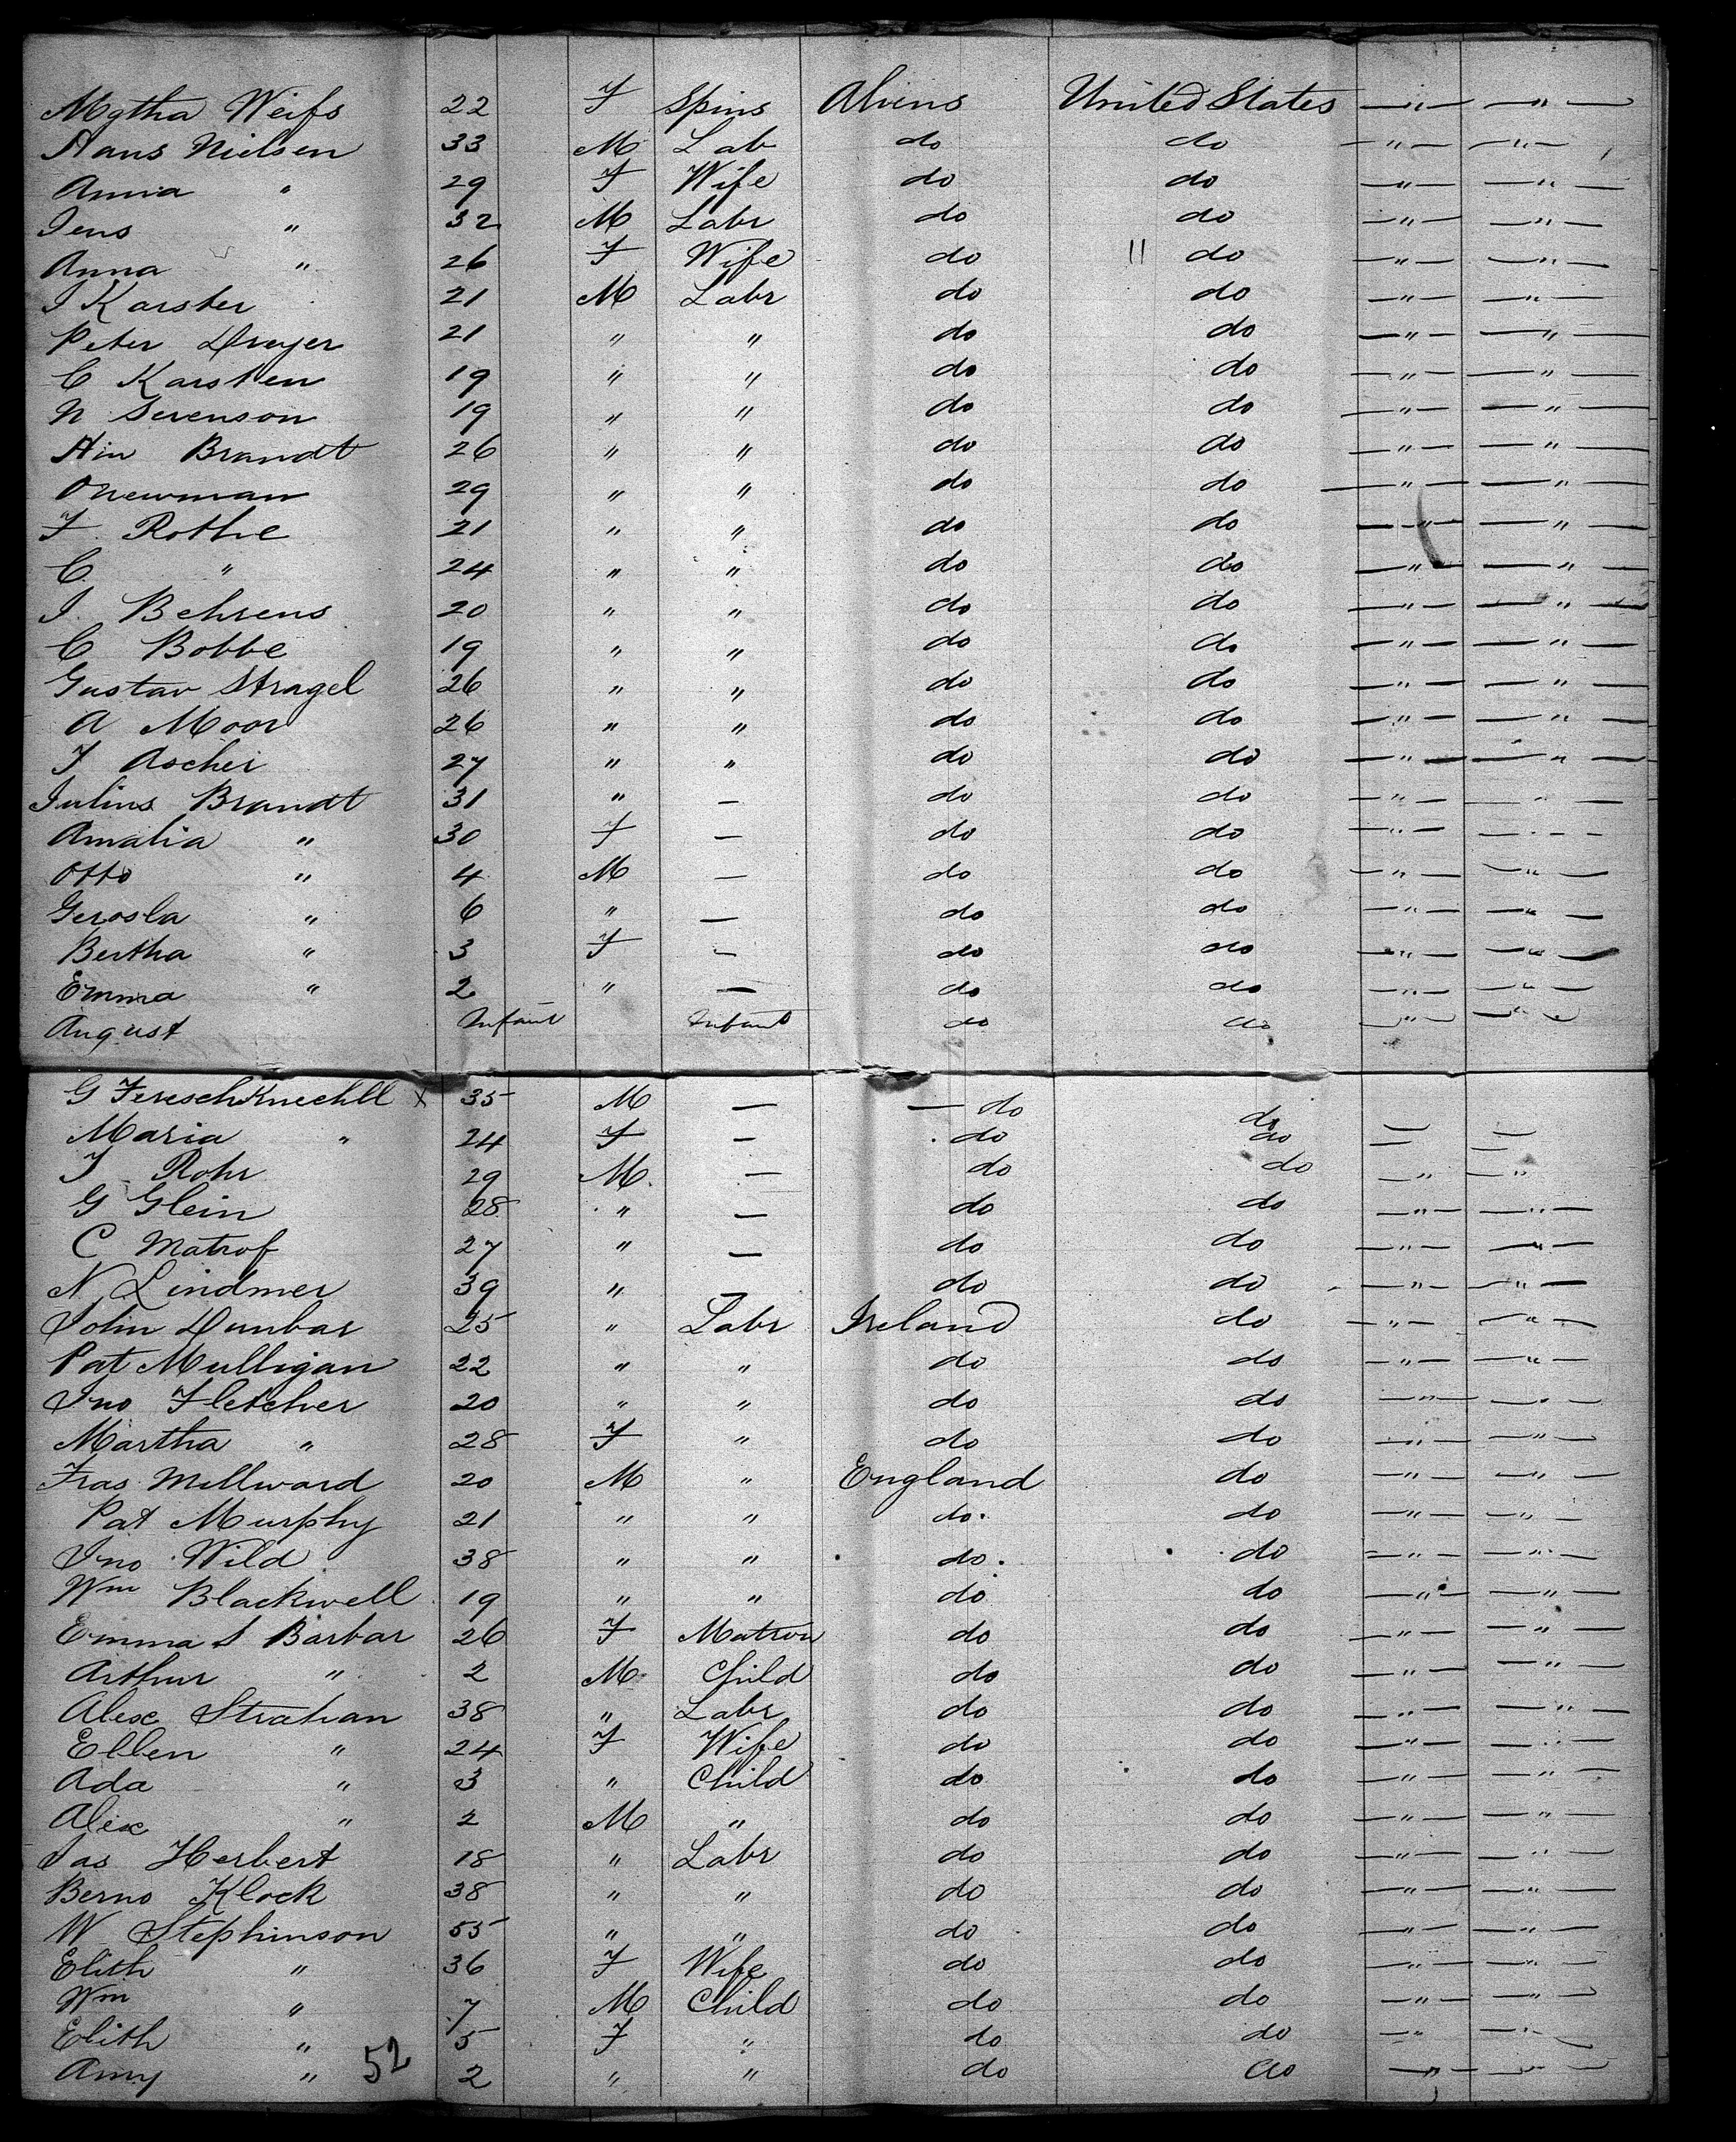 Mgtha Weifs 22 F Spins Aliens United States — " — — " —
Hans Nielsen 33 M Lab do do — " — — " —
Anna " 29 F Wife do do — " — — " —
Jens " 32 M Labr do do — " — — " —
Anna " 26 F Wife do 11 do — " — — " —
J Karster 21 M Labr do do — " — — " —
Peter Dreyer 21 " " do do — " — — " —
C Karsten 19 " " do do — " — — " —
N Serenson 19 " " do do — " — — " —
Hin Brandt 26 " " do do — " — — " —
O Newman 29 " " do do — " — — " —
F Rothe 21 " " do do — " — — " —
C " 24 " " do do — " — — " —
J. Behrens 20 " " do do — " — — " —
C Bobbe 19 " " do do — " — — " —
Gustav Stragel 26 " " do do — " — — " —
A Moor 26 " " do do — " — — " —
J Ascher 27 " " do do — " — — " —
Julius Brandt 31 " — do do — " — — " —
Amalia " 30 F — do do — " — — " —
Otto " 4 M — do do — " — — " —
Gerosla " 6 " — do do — " — — " —
Bertha " 3 F — do do — " — — " —
Emma " 2 " — do do — " — — " —
August Infant Infant do do — " — — " —
G x 35 M — — do do — —
Maria " 24 F — do do — —
J Rohr 29 M — do do — " — "
G Glein 28 " — do do — " — — " —
C Matrof 27 " — do do — " — — " —
N Lindmer 39 " — do do — " — — " —
John Dunbar 25 " Labr Ireland do — " — — " —
Pat Mulligan 22 " " do do — " — — " —
Jno Fletcher 20 " " do do — " — — " —
Martha " 28 F " do do — " — — " —
Fras Millward 20 M " England do — " — — " —
Pat Murphy 21 " " do. do — " — — " —
Jno Wild 38 " " do. do — " — — " —
Wm Blackwell 19 " " do do — " — — " —
Emma S Barbar 26 F Matron do do — " — — " —
Arthur " 2 M Child do do — " — — " —
Alex Strahan 38 " Labr do do — " — — " —
Ellen " 24 F Wife do do — " — — " —
Ada " 3 " Child do do — " — — " —
Alex " 2 M " do do — " — — " —
Jas Herbert 18 " Labr do do — " — — " —
Berno Klock 38 " " do do — " — — " —
W Stephinson 55 " " do do — " — — " —
Elith " 36 F Wife do do — " — — " —
Wm " 7 M Child do do — " — — " —
Elith " 5 F " do do — " — " —
Amy " 52 2 " " do do — " — — " —